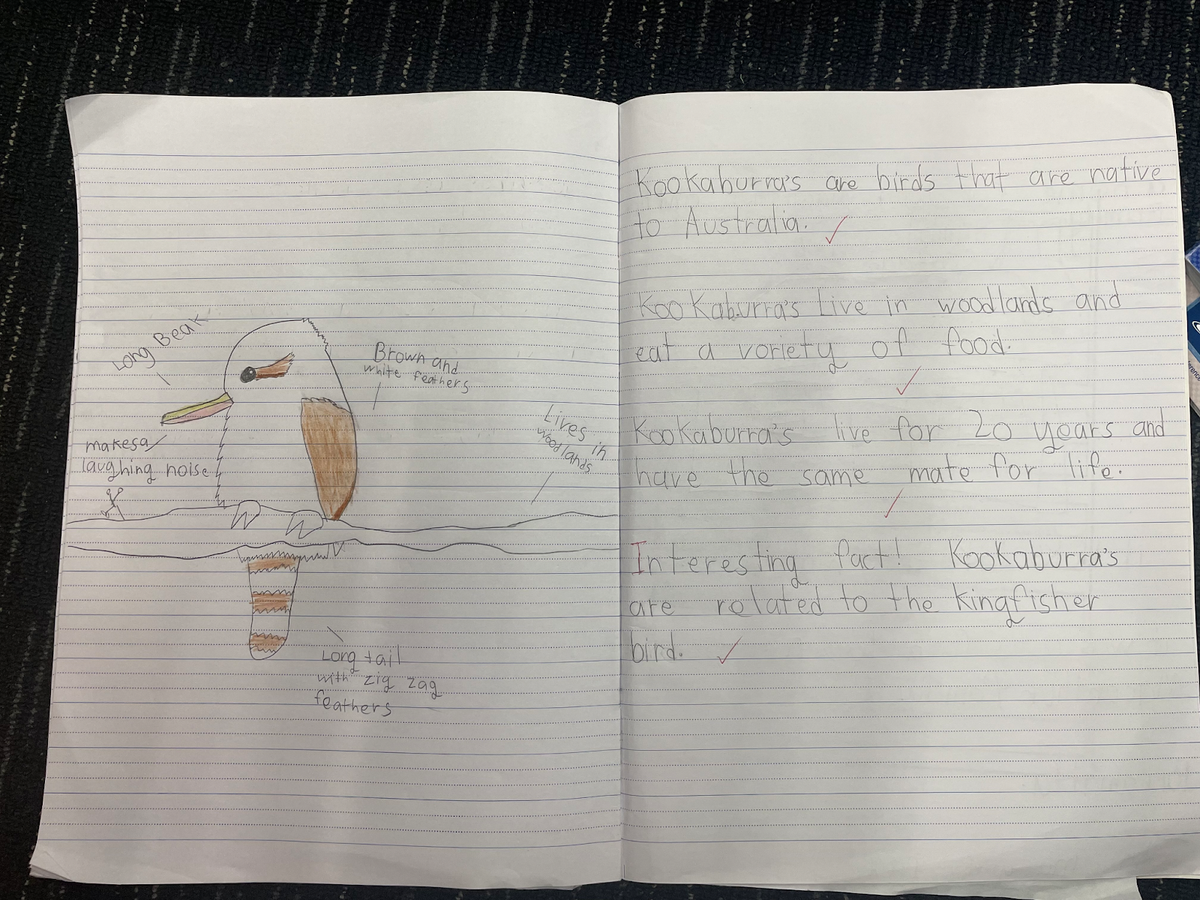 Long Beak
Brown and
white feathers
makes a
laughing noise
Lives in
woodlands
Long tail
with zig zag
feathers
Kookaburra's are birds that are native
to Australia.
Kookaburra's Live in woodlands and
eat a voriety of food.
Kookaburra's live for 20 years and
have the same mate for life.
Interesting fact! Kookaburra's
are related to the kingfisher
bird.